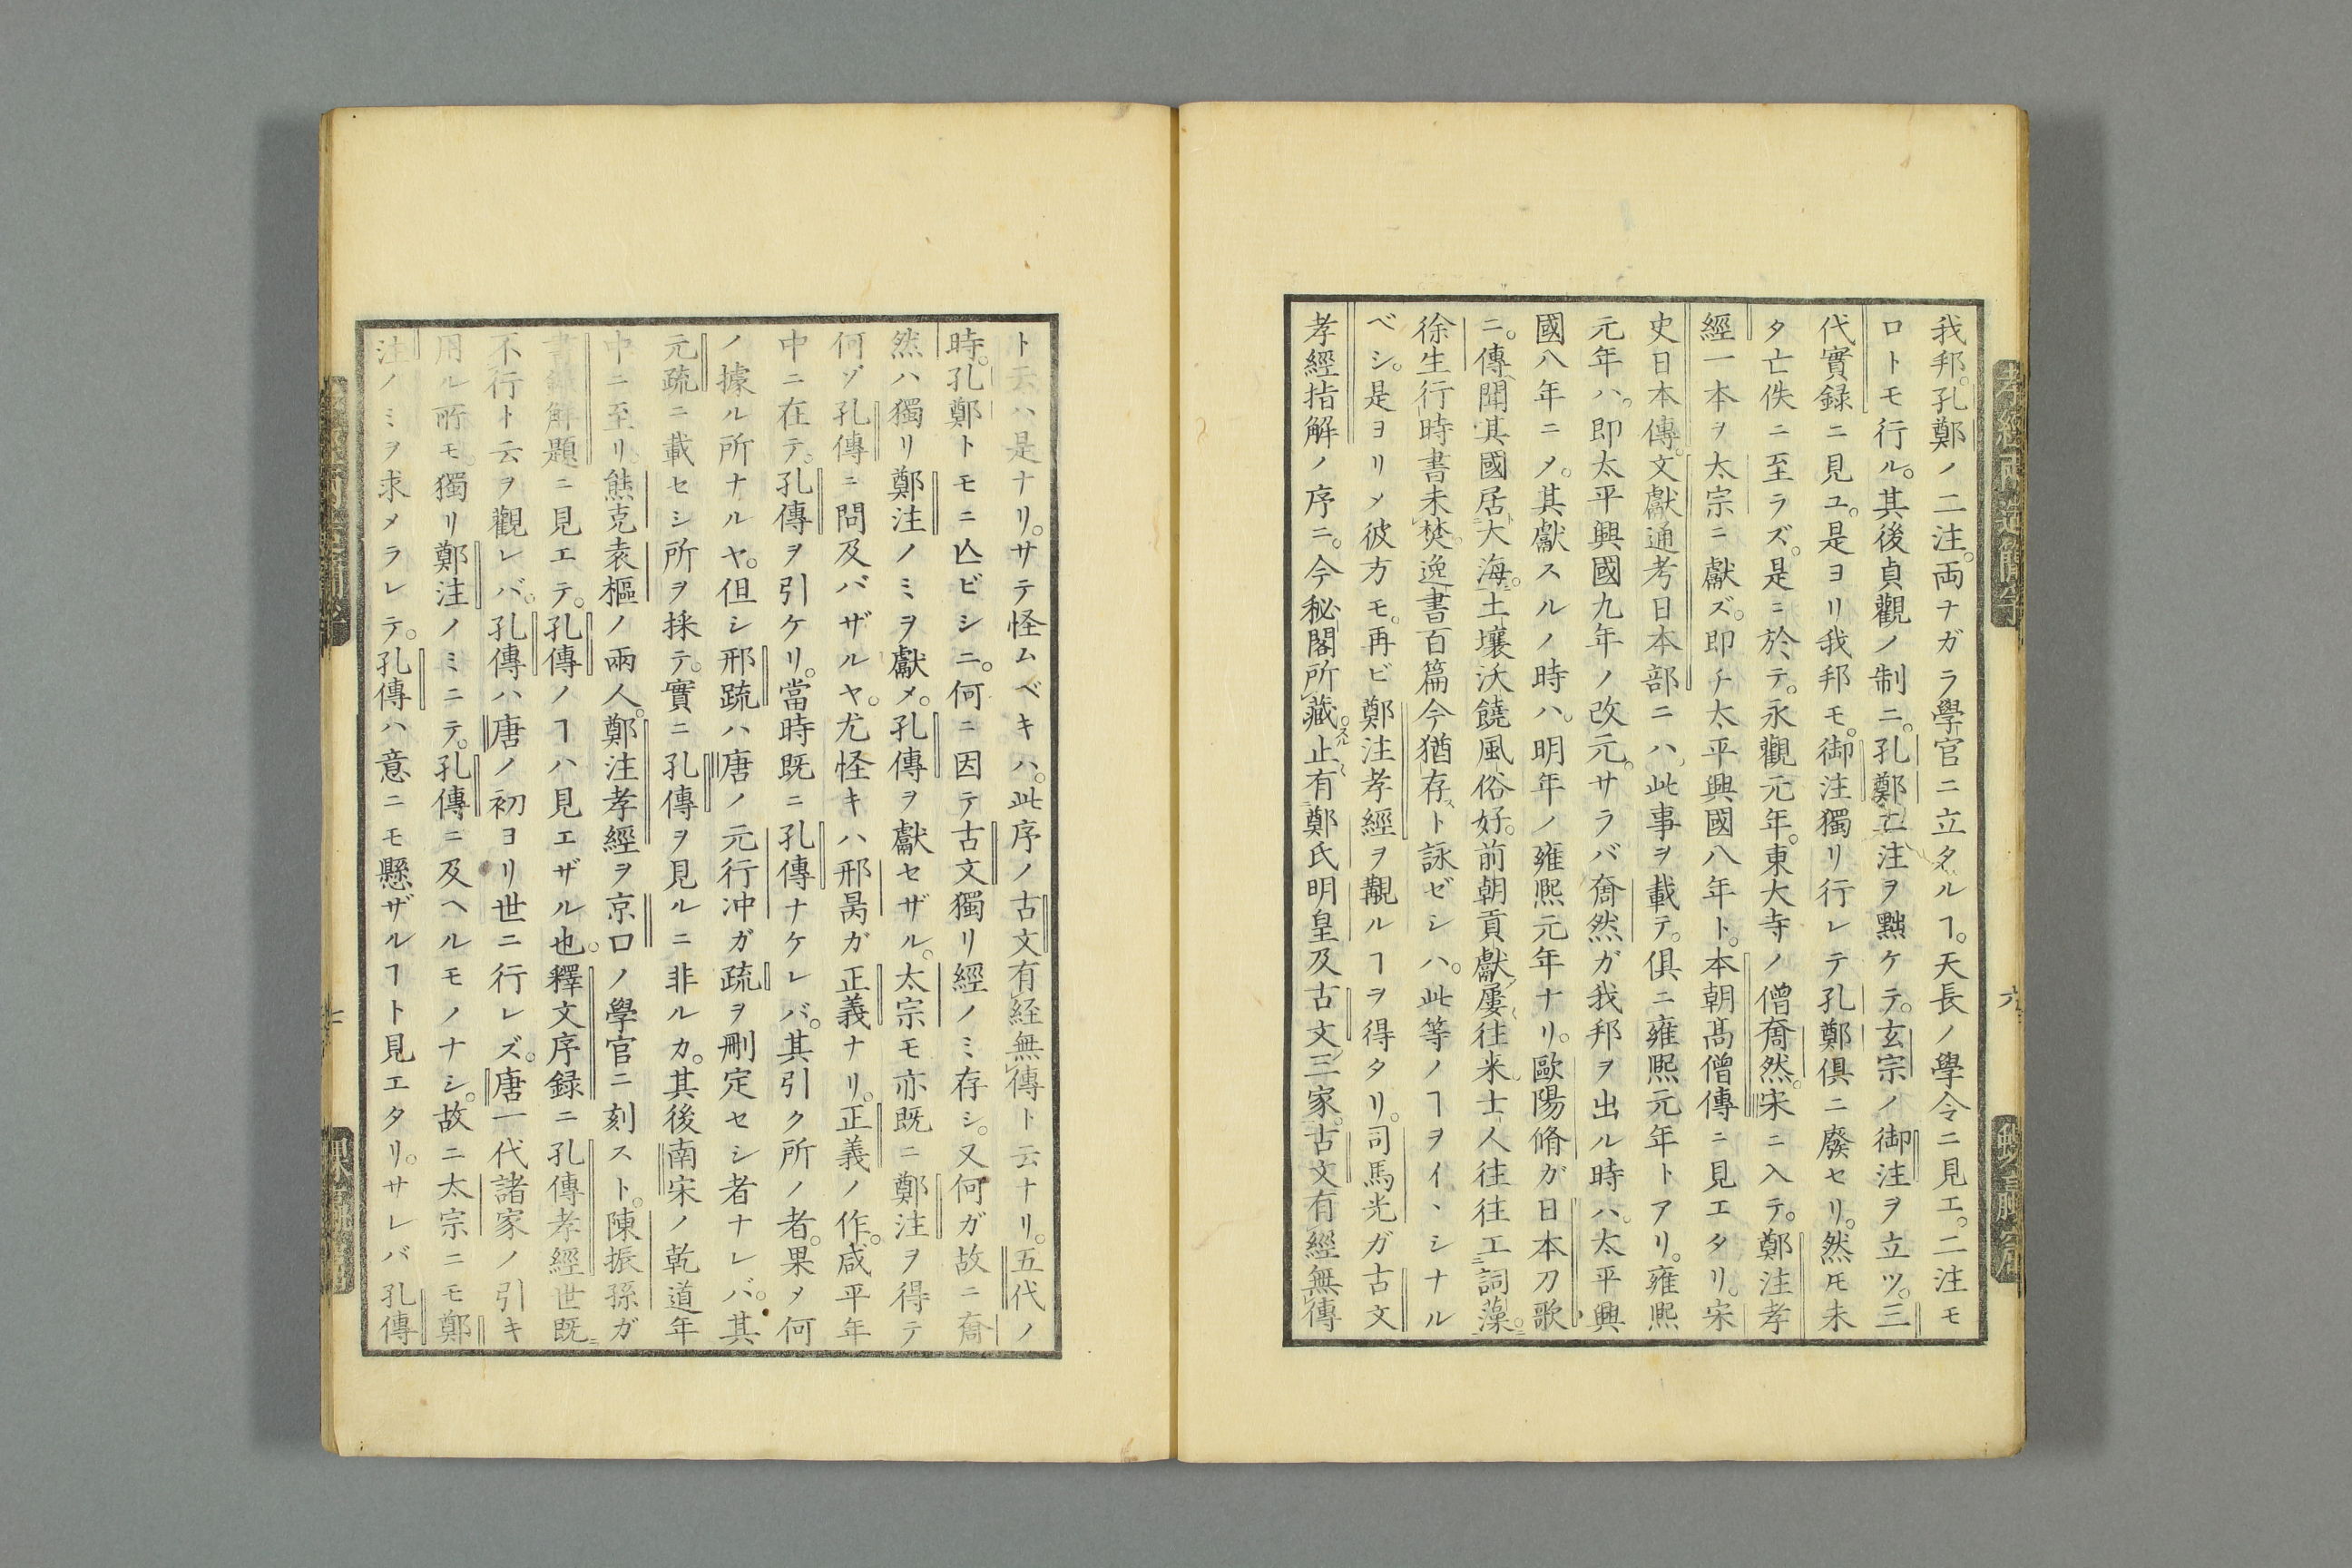 我邦。孔鄭ノ二注。両ナガラ學官ニ立タルヿ。天長ノ學令ニ見エ。二注モ
ロトモ行ル。其後貞觀ノ制ニ。孔鄭二注ヲ黜ケテ。玄宗ノ御注ヲ立ツ。三
代實録ニ見ユ。是ヨリ我邦モ。御注獨リ行レテ孔鄭倶ニ廢セリ。然𪜈未
タ亡佚ニ至ラズ。是ニ於テ。永觀元年。東大寺ノ僧奝然。宋ニ入テ。鄭注孝
經一本ヲ太宗ニ獻ズ。即チ太平興國八年ト。本朝髙僧傳ニ見エタリ。宋
史日本傳。文獻通考日本部ニハ。此事ヲ載テ。倶ニ雍熙元年トアリ。雍熙
元年ハ。即太平興國九年ノ改元。サラバ奝然ガ我邦ヲ出ル時ハ。太平興
國八年ニメ。其獻スルノ時ハ。明年ノ雍熙元年ナリ。歐陽脩ガ日本刀歌
ニ。傳聞其國居大海。土壤沃饒風俗好。前朝貢獻屢往来。士人往往工詞藻。
徐生行時書未焚。逸書百篇今猶存ト詠ゼシハ。此等ノヿヲイヽシナル
ベシ。是ヨリメ彼方モ。再ビ鄭注孝經ヲ覯ルヿヲ得タリ。司馬光ガ古文
孝經指解ノ序ニ。今秘閣所藏止有鄭氏明皇及古文三家。古文有經無傳
六
ト云ハ是ナリ。サテ怪ムベキハ。此序ノ古文有経無傳ト云ナリ。五代ノ
時。孔鄭トモニ亾ビシニ。何ニ因テ古文獨リ經ノミ存シ。又何ガ故ニ奝
然ハ獨リ鄭注ノミヲ獻メ。孔傳ヲ獻セザル。太宗モ亦既ニ鄭注ヲ得テ
何ゾ孔傳ニ問及バザルヤ。尤怪キハ邢昺ガ正義ナリ。正義ノ作。咸平年
中ニ在テ。孔傳ヲ引ケリ。當時既ニ孔傳ナケレバ。其引ク所ノ者。果メ何
ノ據ル所ナルヤ。但シ邢䟽ハ唐ノ元行冲ガ疏ヲ刪定セシ者ナレバ。其
元疏ニ載セシ所ヲ採テ。實ニ孔傳ヲ見ルニ非ルカ。其後南宋ノ乾道年
中ニ至リ。熊克袁樞ノ兩人。鄭注孝經ヲ京口ノ學官ニ刻スト。陳振孫ガ
書録解題ニ見エテ。孔傳ノヿハ見エザル也。釋文序録ニ孔傳孝經世既
不行ト云ヲ觀レバ。孔傳ハ唐ノ初ヨリ世ニ行レズ。唐一代諸家ノ引キ
用ル所モ。獨リ鄭注ノミニテ。孔傳ニ及ヘルモノナシ。故ニ太宗ニモ鄭
注ノミヲ求メラレテ。孔傳ハ意ニモ懸ザルヿト見エタリ。サレバ孔傳
七